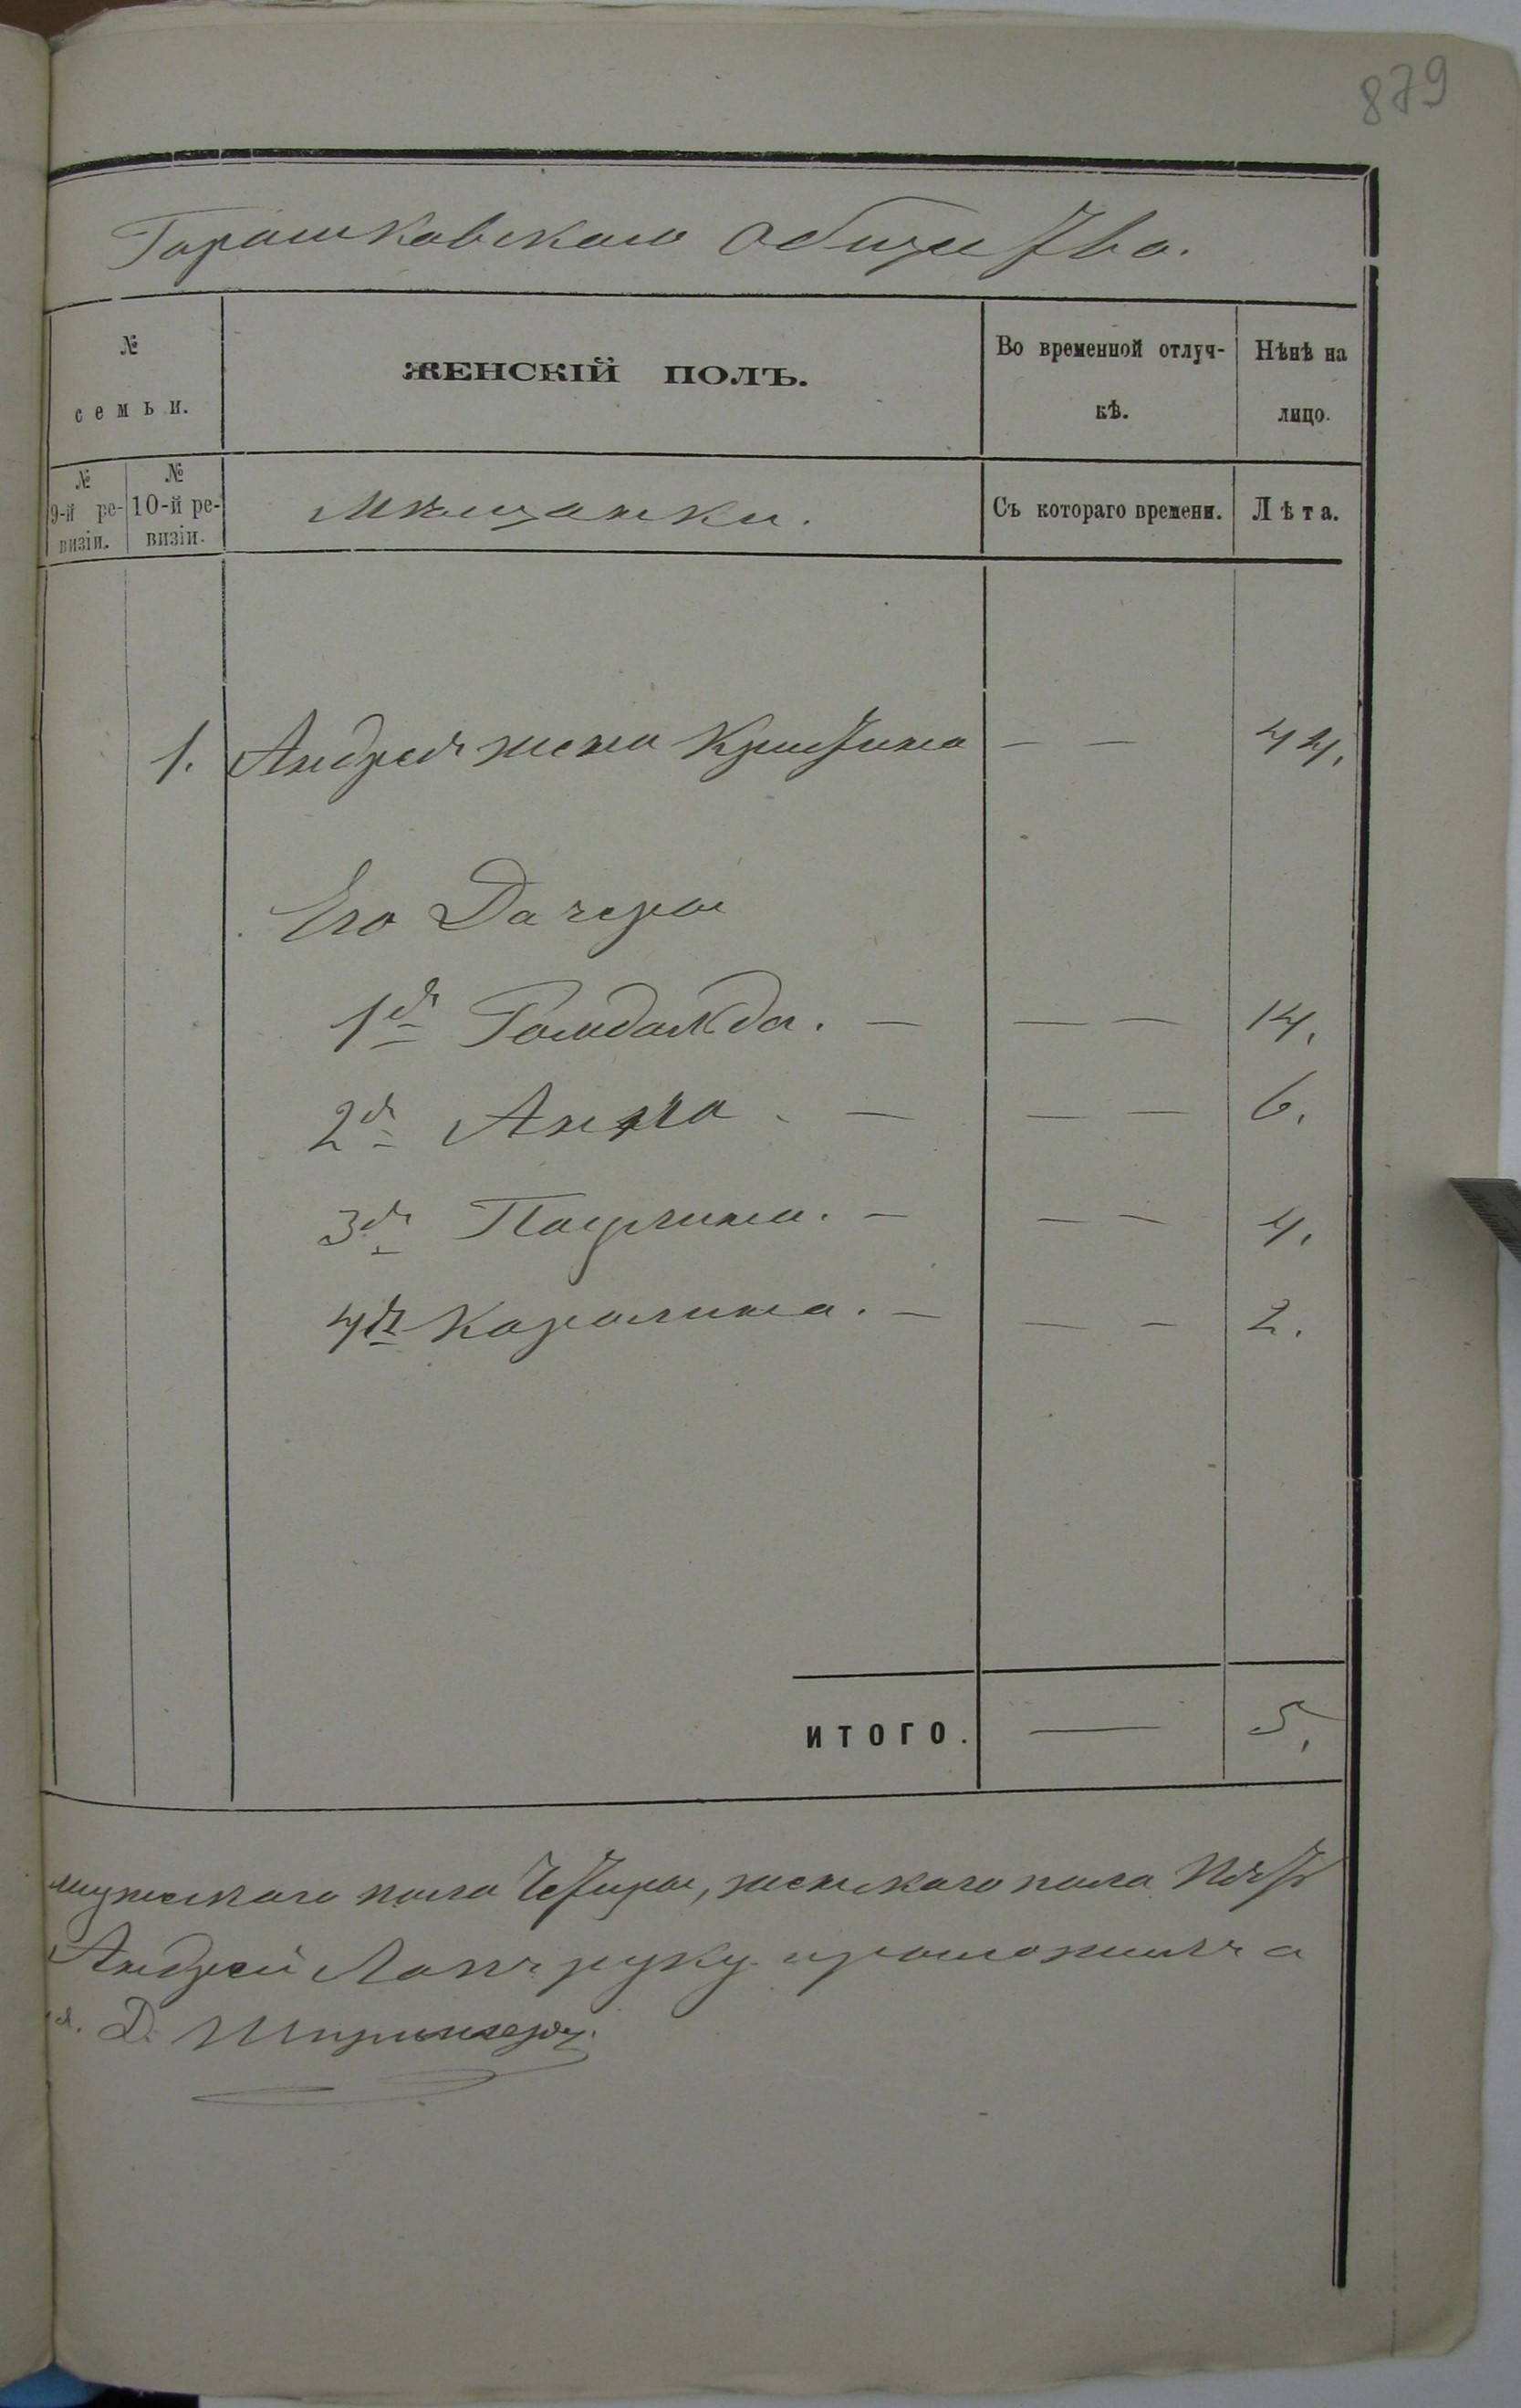 879
Горошковскаго общества.
№
семьи.
ЖЕНСКІЙ ПОЛЪ.
Во временной отлуч-
кѣ.
Нѣнѣ на
лицо.
№
9-й ре-
визіи.
№
10-й ре-
визіи.
Мѣщанки.
Съ котораго времени.
Лѣта.
1. Андрея жена Кристина — — 44.
Его Дачери
1я — — — 14.
2я Анна — — — 6.
3я Паулина. — — — 4.
4я Каралина. — — — 2.
ИТОГО. — 5.
мужескаго пола Четыри, женскаго пола Пять
Андрей руку приложилъ а
Д.